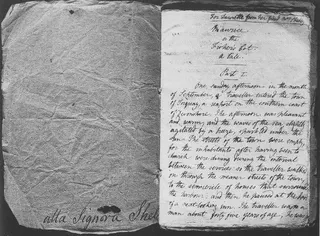 For Laurette from her friend Mrs Mason
Maurice
or the
Fisher's Cot
a tale.
Part I.
One sunday afternoon in the month
of September a Traveller entered the town
of Torquay, a seaport on the southern coast
of Devonshire. The afternoon was pleasant
and warm, and the waves of the sea, slightly
agitated by a breeze, sparkled under the
sun. The streets of the town were empty,
for the inhabitants after having been to
church were during the interval
between the services so the Traveller walked
on through the mean streets of the town
to the semicircle of houses that surrounds
the harbour, and then he paused at the door
of a neat-looking inn. The traveller was a
man about forty five years of age, he was
alla Signora Shel